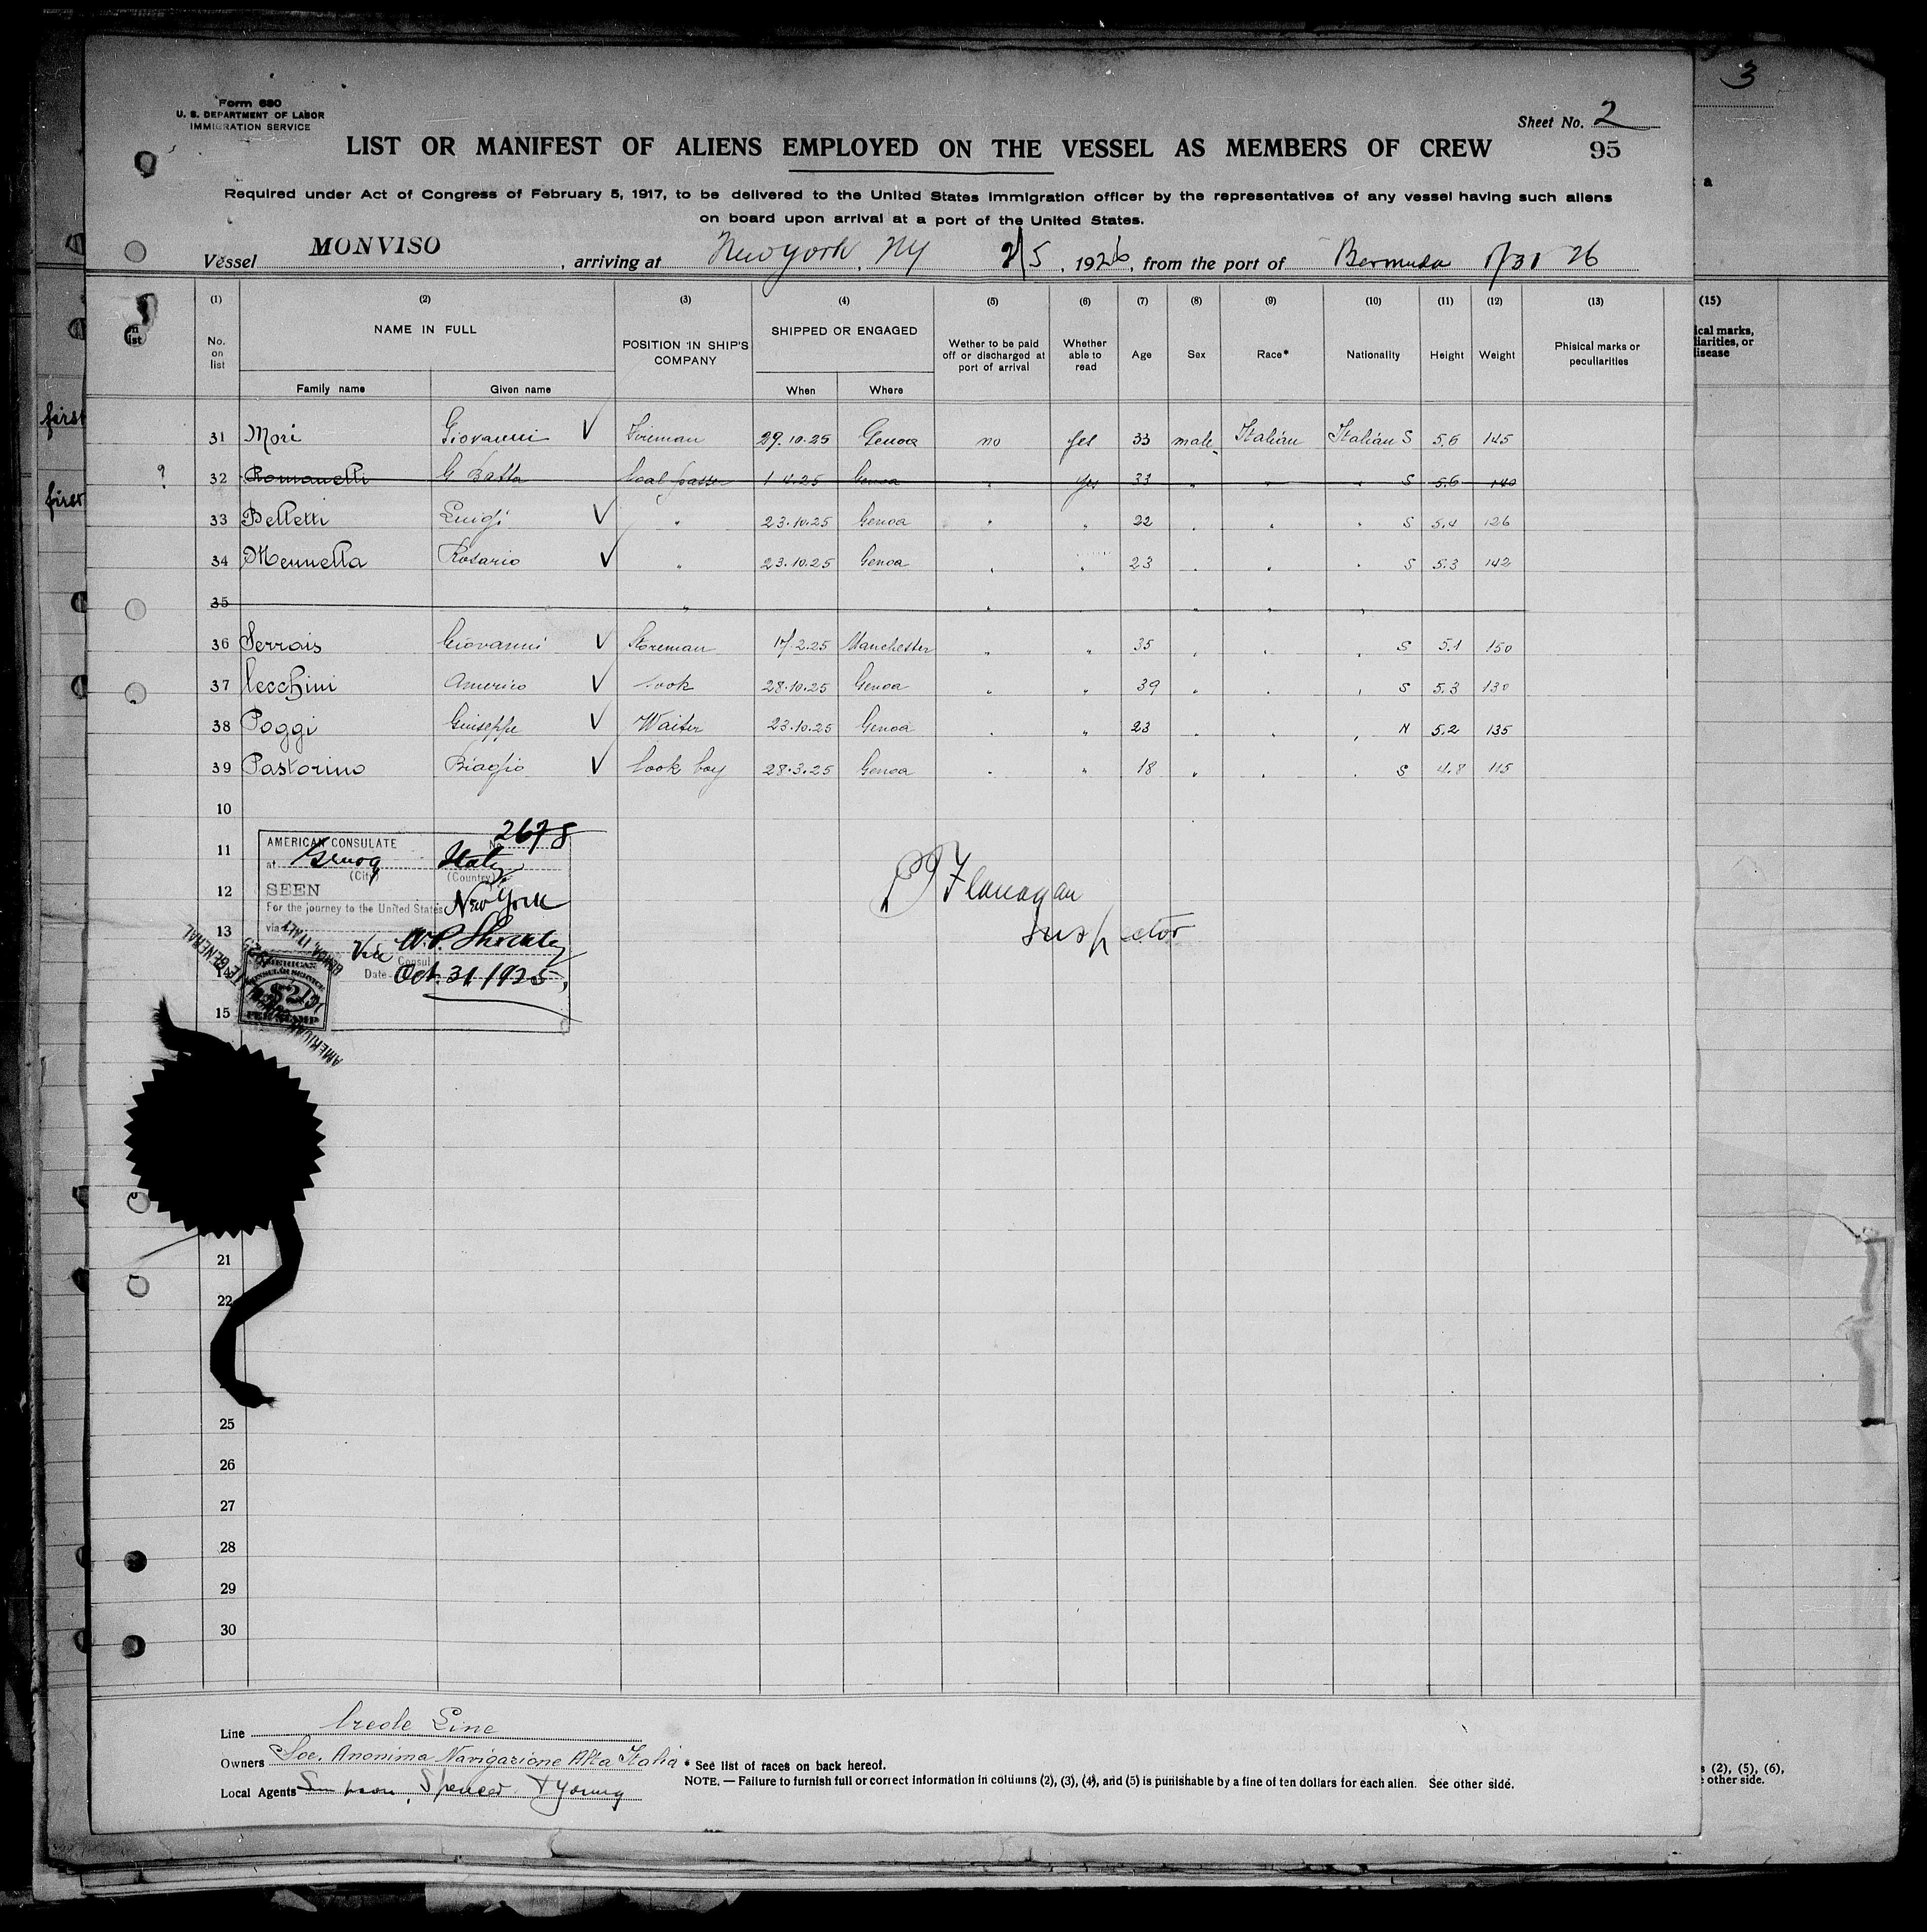 3
Form 680
U. S. DEPARTMENT OF LABOR
IMMIGRATION SERVICE
Sheet No. 2
LIST OR MANIFEST OF ALIENS EMPLOYED ON THE VESSEL AS MEMBERS OF CREW
95
Required under Act of Congress of February 5, 1917, to be delivered to the United States immigration officer by the representatives of any vessel having such aliens
on board upon arrival at a port of the United States.
Vessel MONVISO, arriving at New York, NY 2/5, 1926, from the port of Bermuda 1/31 26
(1) (2) (3) (4) (5) (6) (7) (8) (9) (10) (11) (12) (13) (15)
No. on list NAME IN FULL POSITION IN SHIP'S COMPANY SHIPPED OR ENGAGED Wether to be paid off or discharged at port of arrival Whether able to read Age Sex Race* Nationality Height Weight Phisical marks or peculiarities
Family name Given name When Where
ical marks,
liarities, or
isease
first
31 Mori Giovanni V Fireman 29.10.25 Genoa no yes 33 male Italian Italian S 5.6 145
? 32 Romanelli G Batta Coal passer 1 4.25 Genoa " yes 33 " " " S 5.6 140
first
33 Belletti Luigi V " 23.10.25 Genoa " " 22 " " " S 5.4 126
34 Mennella Rosario V " 23.10.25 Genoa " " 23 " " " S 5.3 142
35 " " " " "
36 Serrais Giovanni V Storeman 17.2.25 Manchester " " 35 " " " S 5.1 150
37 Cecchini Americo V Cook 28.10.25 Genoa " " 39 " " " S 5.3 130
38 Poggi Giuseppe V Waiter 23.10.25 Genoa " " 23 " " " N 5.2 135
39 Pastorino Biagio V Cook boy 28.3.25 Genoa " " 18 " " " S 4.8 115
10
11
12
13
15
AMERICAN CONSULATE No. 2678
at Genoa Italy
(City) (Country)
SEEN
For the journey to the United States New York
via
Vice Consul
Date Oct. 31, 1925,
AMERICAN
CONSULAR SERVICE
$2
FEE STAMP
GENOA, ITALY
AMERICAN
GENERAL
Flanagan
Inspector
21
22
25
26
27
28
29
30
Line Creole Line
Owners Soc. Anonima Navigazione Alta Italia
Local Agents Simpson, Spence & Young
* See list of races on back hereof.
NOTE. — Failure to furnish full or correct information in columns (2), (3), (4), and (5) is punishable by a fine of ten dollars for each alien. See other side.
(2), (5), (6),
other side.